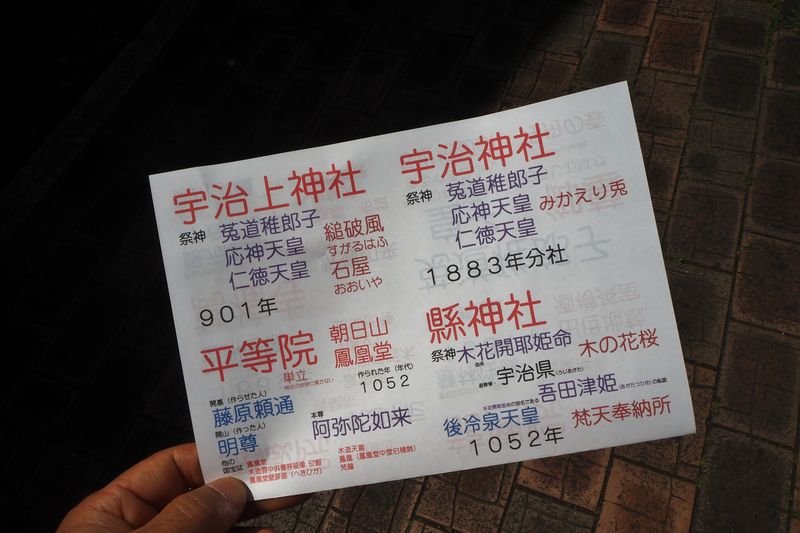 宇治上神社
祭神
菟道稚郎子
応神天皇
仁徳天皇
縋破風
すがるはふ
石屋
おおいや
901年
宇治神社
祭神
菟道稚郎子
応神天皇
仁徳天皇
みかえり兎
1883年分社
平等院
単立
特定の宗派に属さない
朝日山
鳳凰堂
作られた年（年代）
1052
開基（作らせた人）
藤原頼通
開山（作った人）
明尊
本尊
阿弥陀如来
他の
国宝は
鳳凰堂
木造雲中供養菩薩像 52躯
鳳凰堂壁扉画（へきひが）
木造天蓋
鳳凰（鳳凰堂中堂旧棟飾）
梵鐘
縣神社
祭神
木花開耶姫命
木の花桜
由来
宇治県
（うじあがた）
木花開耶姫命の別名である
吾田津姫
（あがたつひめ）の転訛
後冷泉天皇
梵天奉納所
1052年